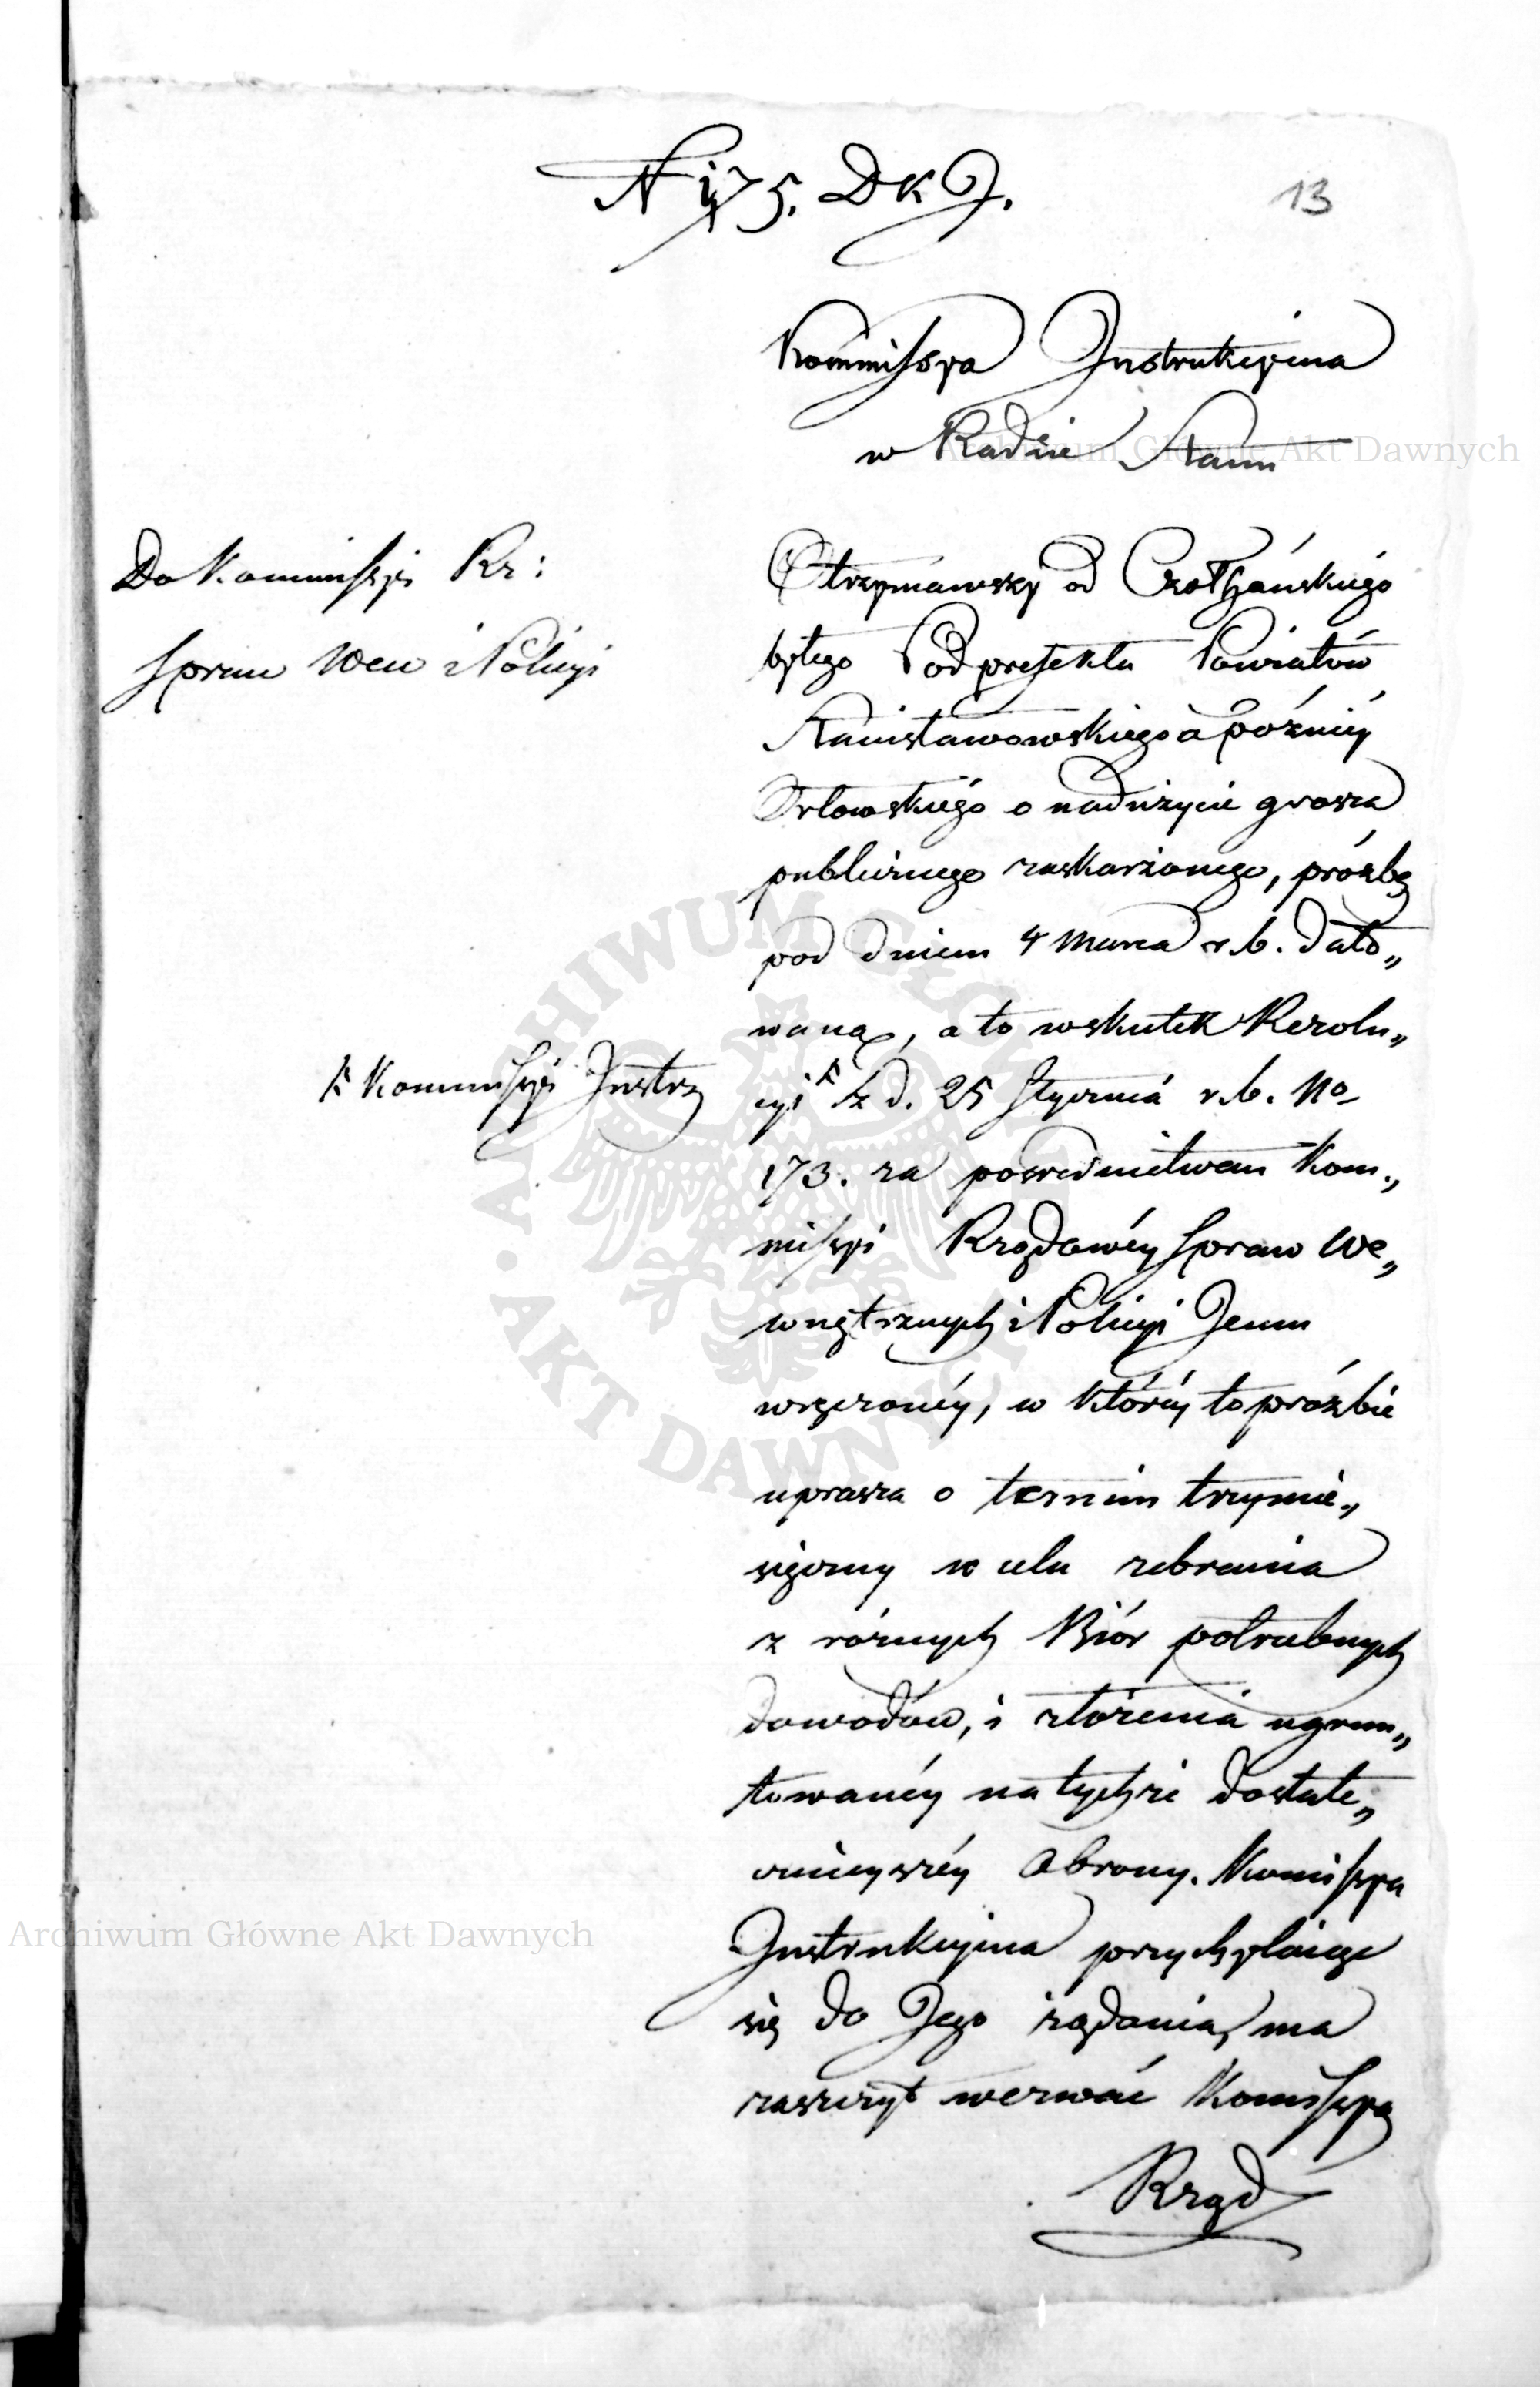 N 175. DKJ.
13
Kommissya Instrukcyina
w Radzie Stanu
Do Kommissyi Rz:
Spraw Wew i Policyi
Otrzymawszy od Czołhańskiego
byłego Podprefekta Powiatów
Stanisławowskiego a późniéy
Orłowskiégo o nadużycie grosza
publicznego zaskarżonego, prózbę
pod dniem 4 Marca r.b. dato„
waną, a to wskutek Rezolu„
cyi F z d. 25 Stycznia r.b. No
F Kommissyi Instrz
173. za posrednictwem Kom„
missyi Rządowéy Spraw We„
wnętrznych i Policyi Jemu
wręczonéy, w któréy to prózbie
uprasza o termin trzymie„
sięczny w celu zebrania
z róznych Biór potrzebnych
dowodów, i złożenia ugrun„
towanéy na tychże dostate„
cznieyszéy Obrony. Komissya
Instrukcyina przychylaiąc
się do Jego żądania, ma
zaszczyt wezwać Komissyą
Rząd
Archiwum Główne Akt Dawnych
Archiwum Główne Akt Dawnych
ARCHIWUM GŁÓWNE AKT DAWNYCH